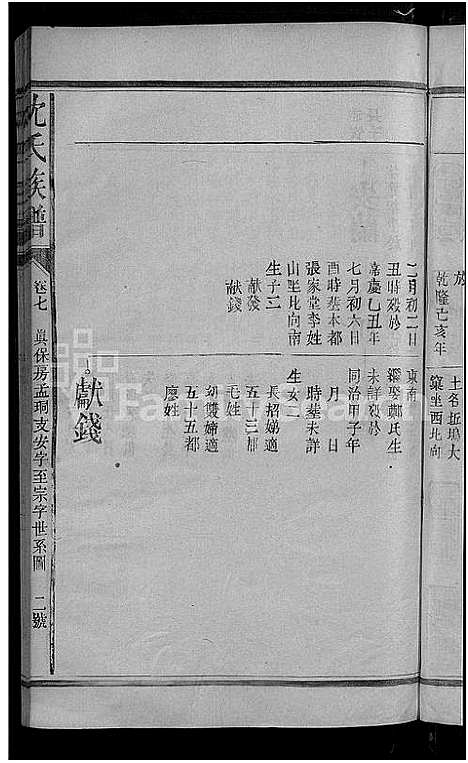 放
乾隆己亥年
土名垢塢大
窠坐西北向
二月初二日
丑時歿於
嘉慶乙丑年
七月初六日
酉時塟本都
張家堂李姓
山里北向南
生子二
献發
献錢
東南
繼娶鄭氏生
未詳歿於
同治甲子年
月 日
時塟未詳
生女二
長招娣適
五十三都
毛姓
幼雙娣適
五十五都
廖姓
獻錢
沈氏族譜
卷七 眞保房孟珦支安字至宗字世系圖 二號